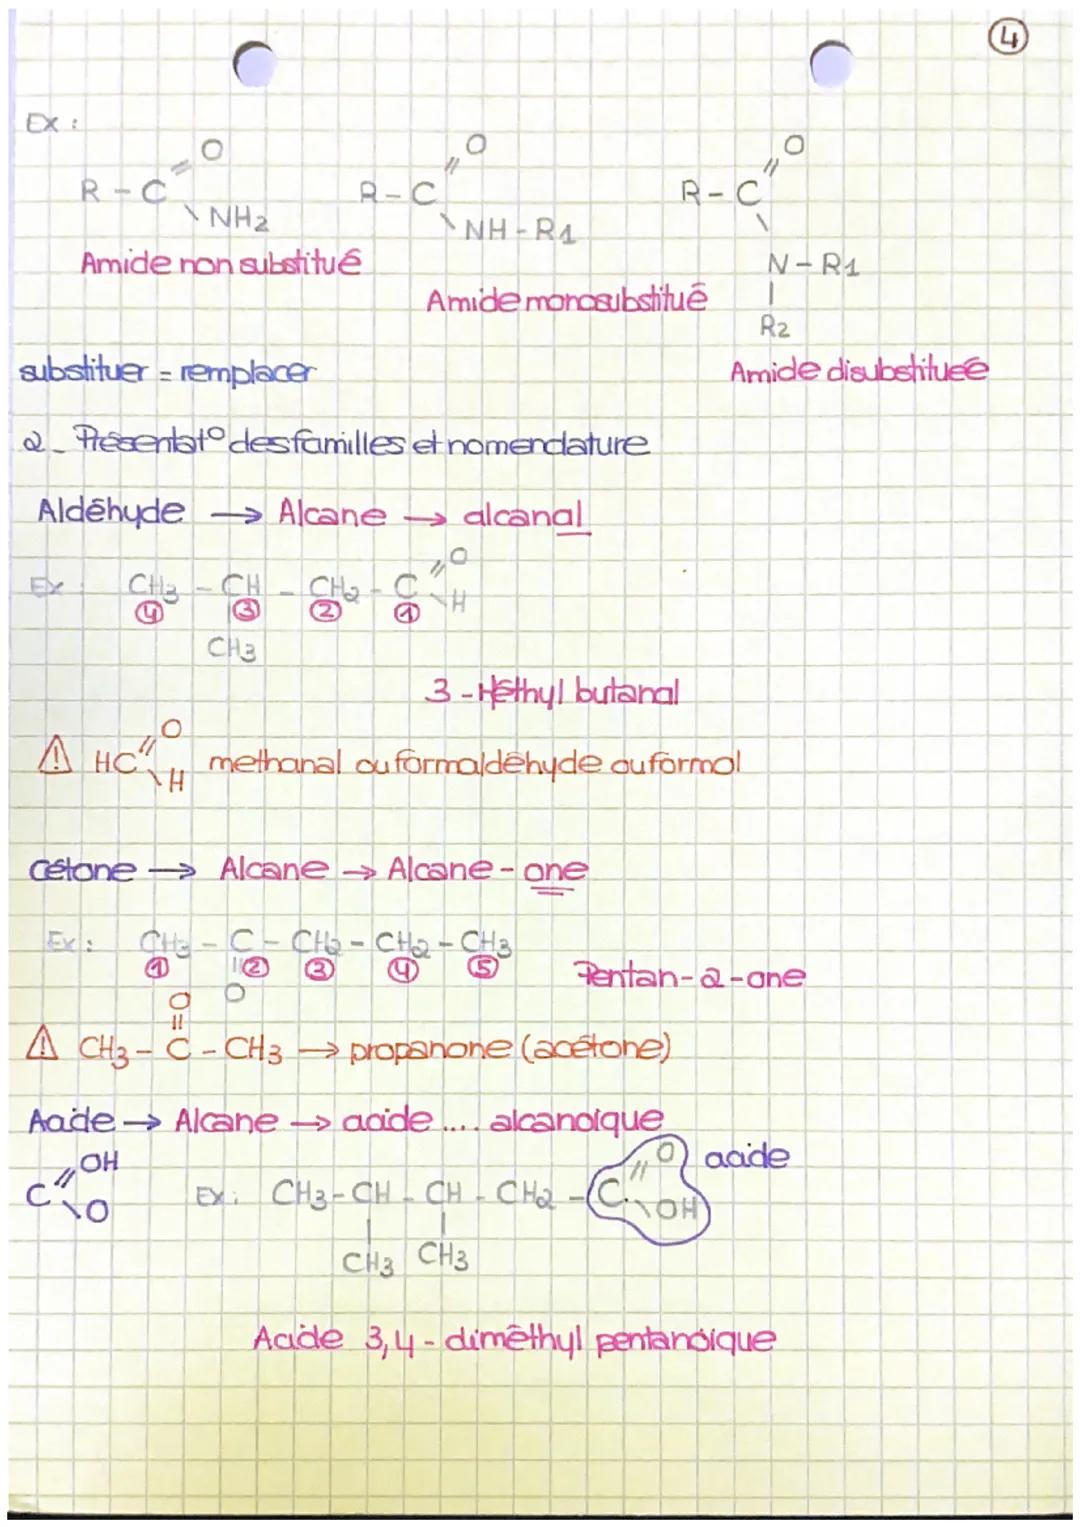 4
Ex :
R - C = O \ NH2
R - C = O \ NH - R1
R - C = O \ N - R1 | R2
Amide non substitué
Amide monosubstitué
Amide disubstituée
substituer = remplacer
2_ Présentat° des familles et nomenclature
Aldéhyde → Alcane → alcanal
Ex : CH3 - CH - CH2 - C = O \ H
4 3 2 1
CH3
3 - Méthyl butanal
⚠ HC = O \ H methanal ou formaldéhyde ou formol
Cétone → Alcane → Alcane - one
Ex : CH3 - C - CH2 - CH2 - CH3
1 2 3 4 5
O
Pentan-2-one
O
⚠ CH3 - C - CH3 → propanone (acétone)
Acide → Alcane → acide .... alcanoïque
C // OH \ O
Ex : CH3 - CH - CH - CH2 - C // O \ OH acide
CH3 CH3
Acide 3,4 - diméthyl pentanoïque